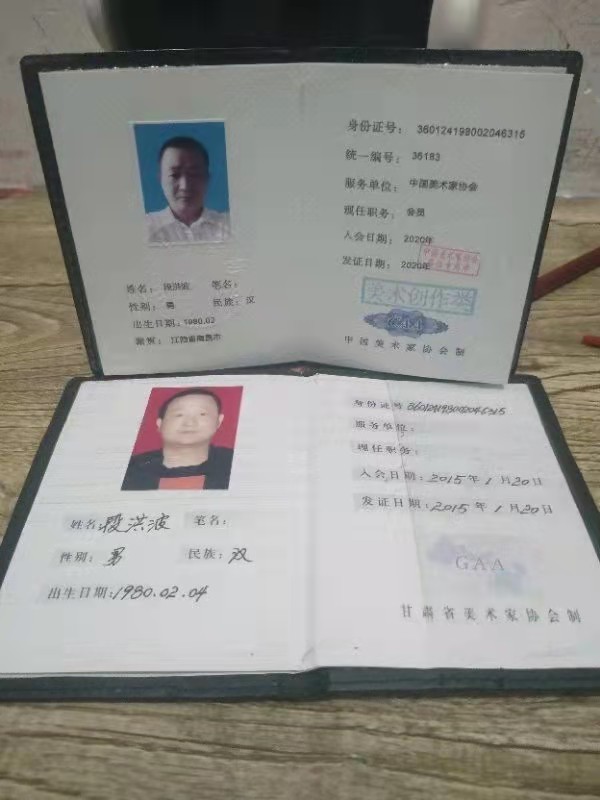 身份证号: 360124198002046315
统一编号: 36183
服务单位: 中国美术家协会
现任职务: 会员
入会日期: 2020年
发证日期: 2020年
美术创作类
中国美术家协会制
姓名: 段洪波 笔名:
性别: 男 民族: 汉
出生日期: 1980.02
籍贯: 江西省南昌市
身份证号360124198002046315
服务单位:
现任职务:
入会日期: 2015年1月20日
发证日期: 2015年1月20日
GAA
甘肃省美术家协会制
姓名: 段洪波 笔名:
性别: 男 民族: 汉
出生日期: 1980.02.04